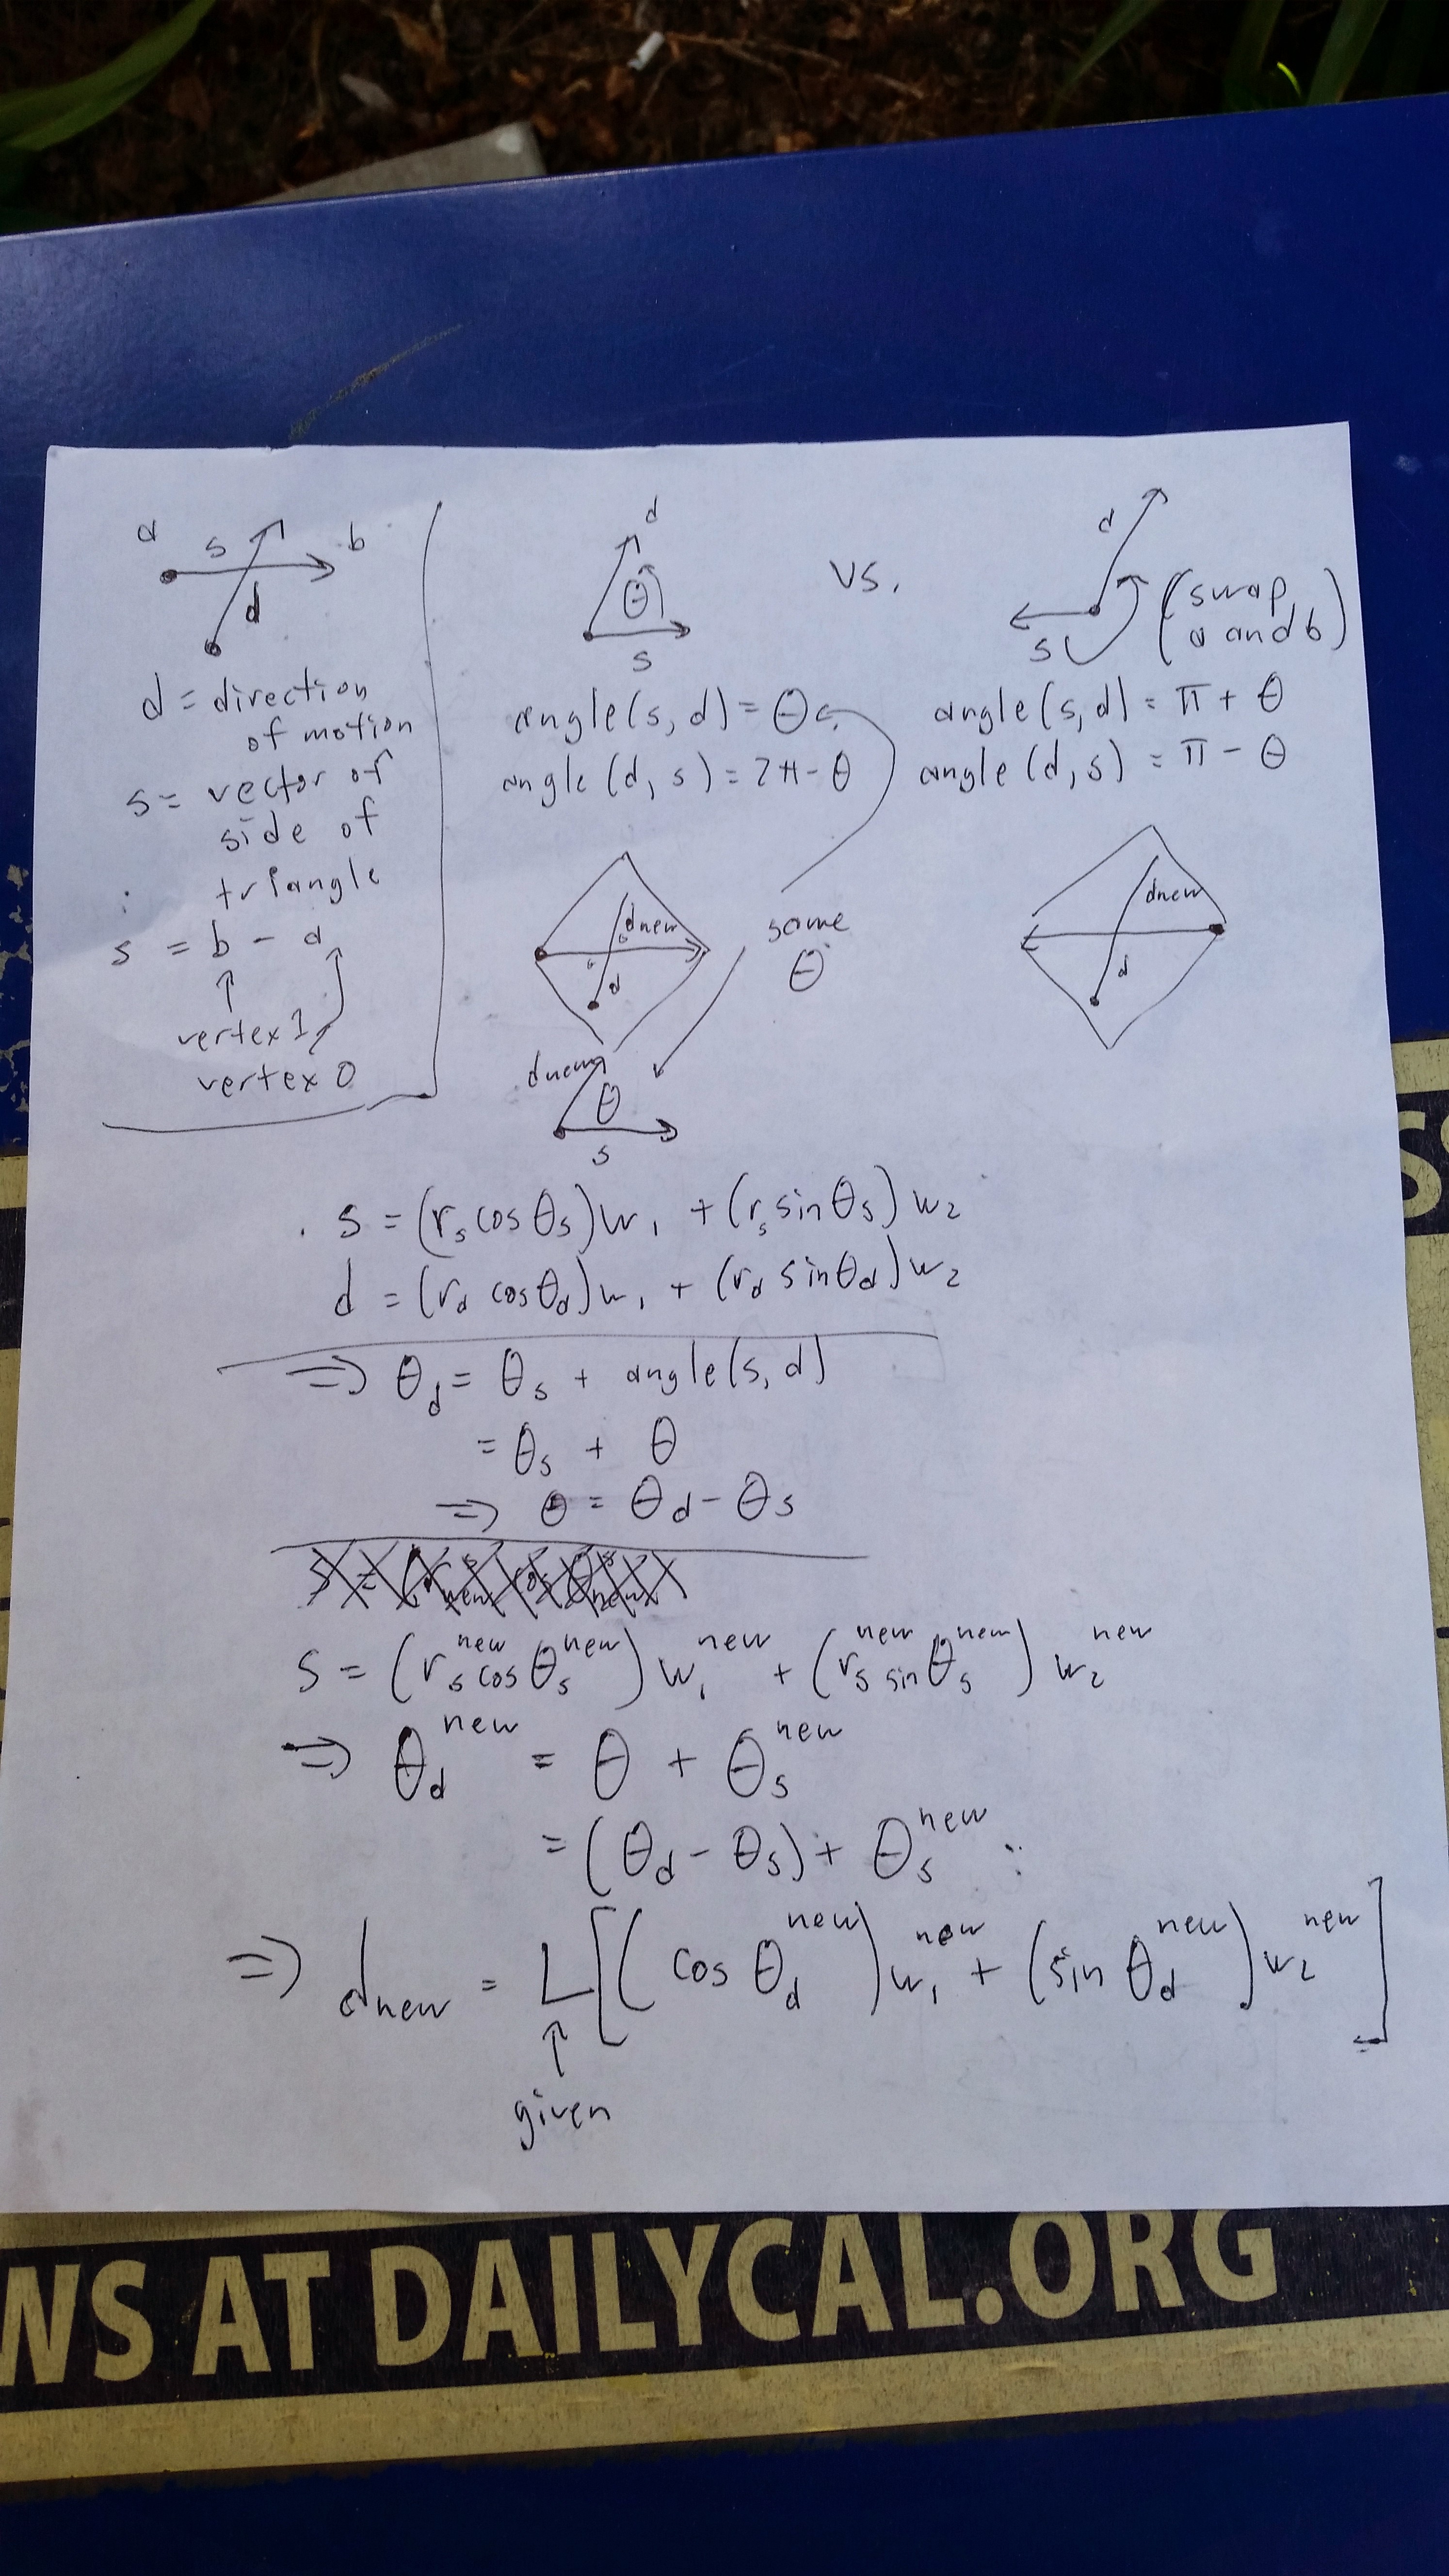 a
s
b
d
d = direction
of motion
s = vector of
side of
triangle
s = b - a
vertex 1
vertex 0
d
θ
s
angle(s, d) = θ
angle(d, s) = 2π - θ
vs.
d
s
(swap
a and b)
angle(s, d) = π + θ
angle(d, s) = π - θ
dnew
d
same
θ
dnew
d
dnew
θ
s
s = (r_s cos θ_s) w_1 + (r_s sin θ_s) w_2
d = (r_d cos θ_d) w_1 + (r_d sin θ_d) w_2
⇒ θ_d = θ_s + angle(s, d)
= θ_s + θ
⇒ θ = θ_d - θ_s
s = (r_s^new cos θ_s^new) w_1^new + (r_s^new sin θ_s^new) w_2^new
⇒ θ_d^new = θ + θ_s^new
= (θ_d - θ_s) + θ_s^new
⇒ d_new = L[(cos θ_d^new) w_1^new + (sin θ_d^new) w_2^new]
given
WS AT DAILYCAL.ORG